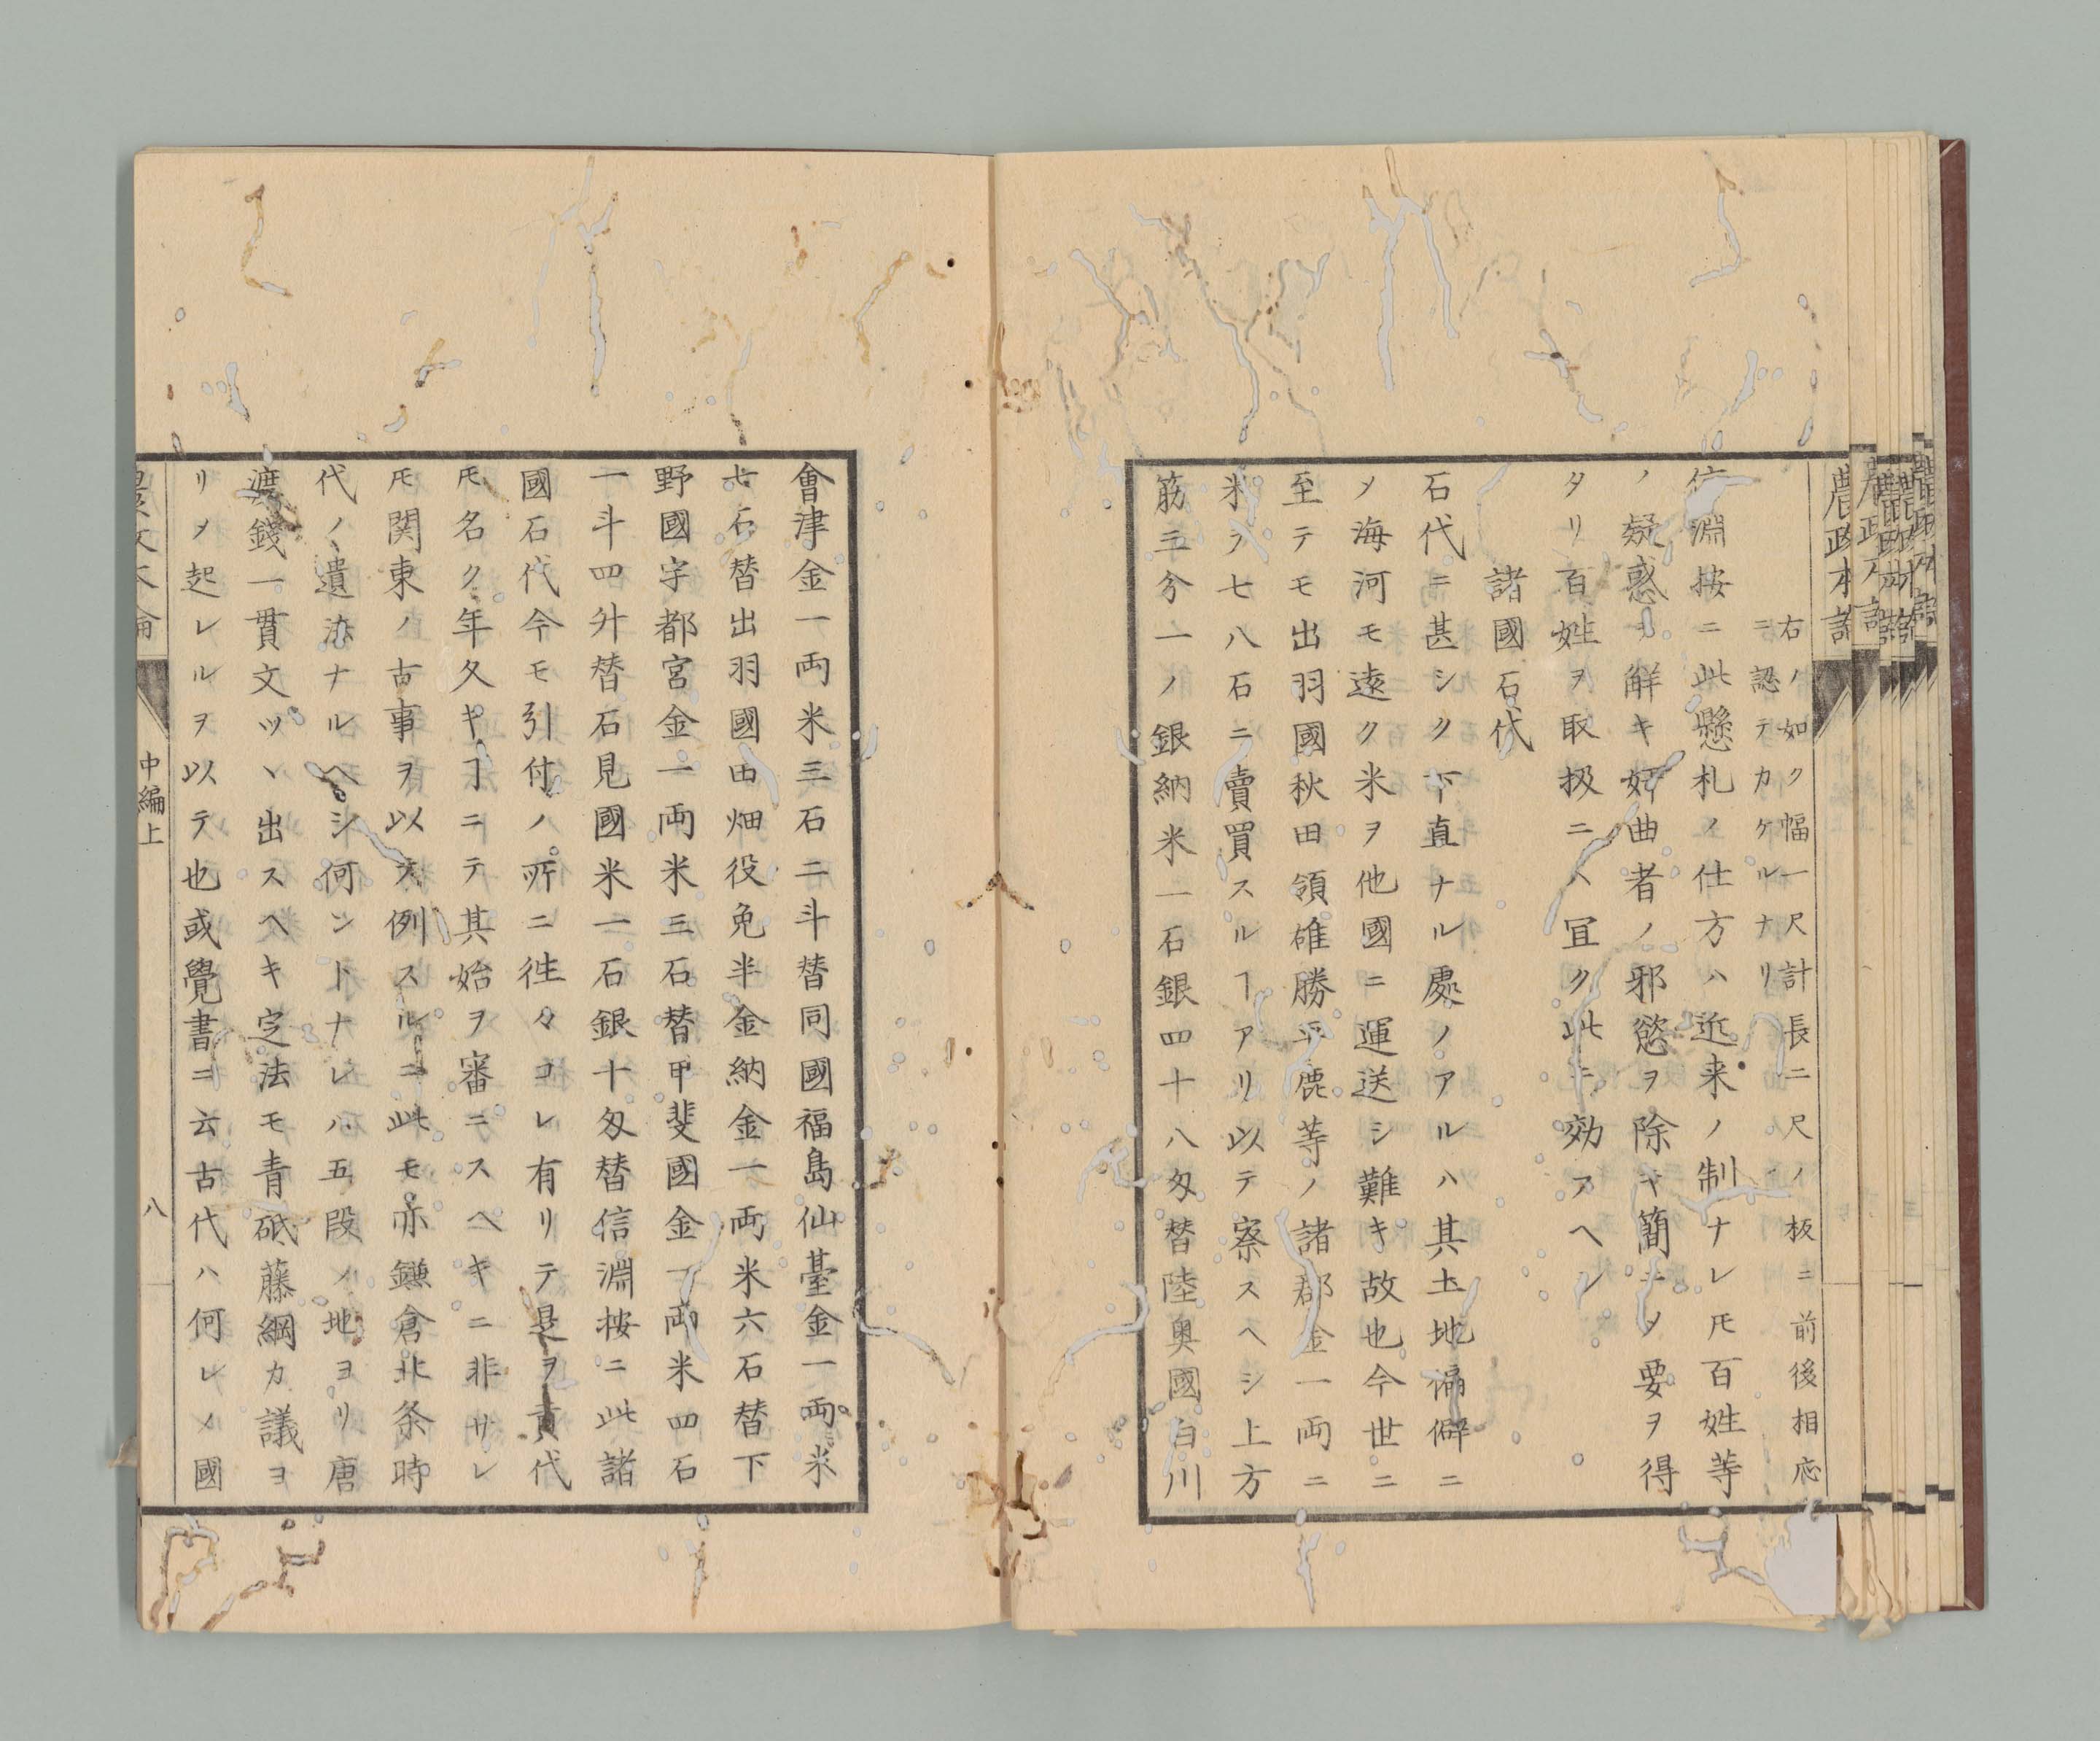 右ノ如ク幅一尺計長二尺ノ板ニ前後相応
ニ認テカケルナリ
信淵按ニ此懸札ノ仕方ハ近来ノ制ナレ𪜈百姓等
ノ疑惑ヲ解キ奸曲者ノ邪慾ヲ除キ簡ニメ要ヲ得
タリ百姓ヲ取扱ニハ冝ク此ニ効アヘシ
諸國石代
石代ニ甚シク下直ナル處ノアルハ其土地偏僻ニ
メ海河モ遠ク米ヲ他國ニ運送シ難キ故也今世ニ
至テモ出羽國秋田領雄勝平鹿等ノ諸郡金一両ニ
米ヲ七八石ニ賣買スルヿアリ以テ察スヘシ上方
筋三分一ノ銀納米一石銀四十八匁替陸奥國白川
會津金一両米三石二斗替同國福島仙臺金一両米
七石替出羽國田畑役免半金納金一両米六石替下
野國宇都宮金一両米三石替甲斐國金一両米四石
一斗四升替石見國米一石銀十匁替信淵按ニ此諸
國石代今モ引付ノ所ニ徃々コレ有リテ是ヲ貢代
𪜈名ク年久キヿニテ其始ヲ審ニスヘキニ非サレ
𪜈関東ノ古事ヲ以テ例スルニ此モ亦鎌倉北条時
代ノ遺法ナルヘシ何ントナレハ五段ノ地ヨリ唐
渡錢一貫文ツヽ出スヘキ定法モ青砥藤綱カ議ヨ
リメ起レルヲ以テ也或覺書ニ云古代ハ何レメ國
中編上
八
農政本論